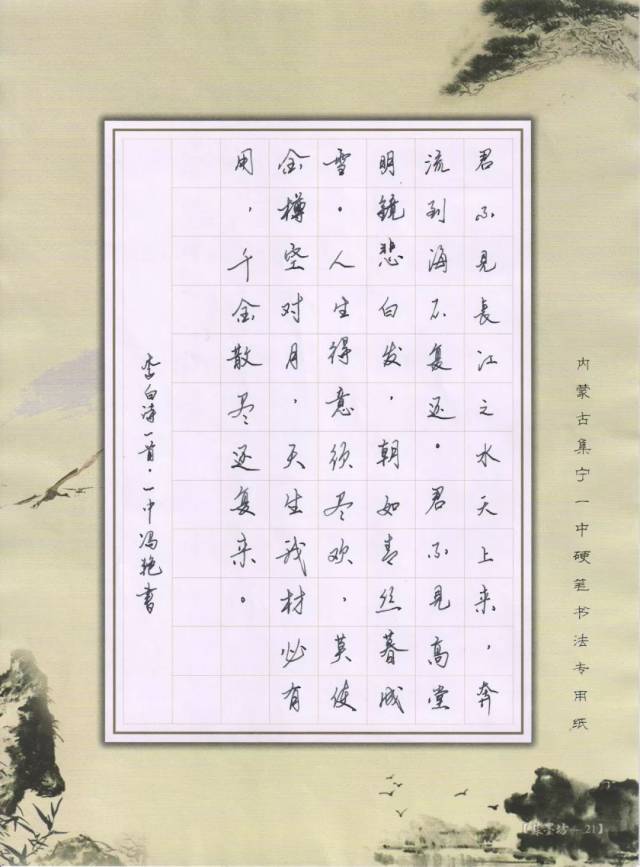 君不見長江之水天上来，奔
流到海不复还。君不見高堂
明镜悲白发，朝如青丝暮成
雪。人生得意须尽欢，莫使
金樽空对月，天生我材必有
用，千金散尽还复来。
李白诗一首·一中冯艳書
内蒙古集宁一中硬笔书法专用纸
墨坊－21】